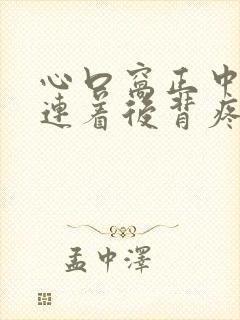 心口窝正中
连着後背疼
孟中泽